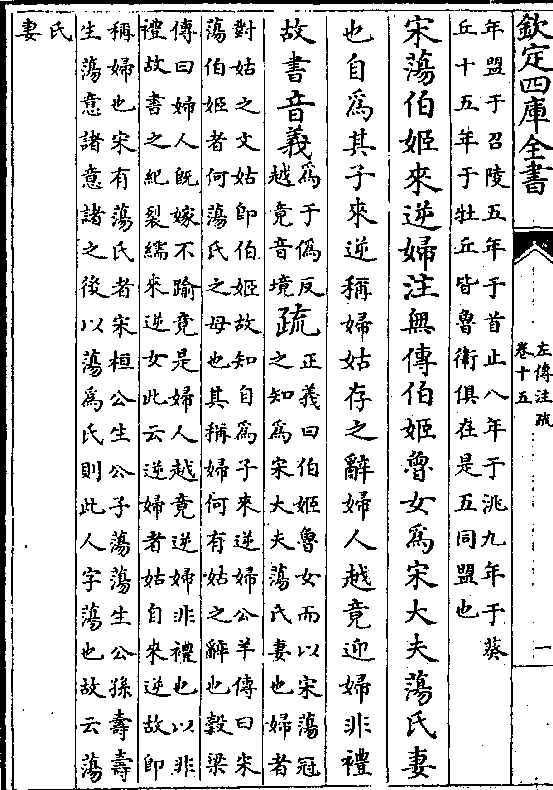 欽定四庫全書
左傳注疏
卷十五
一
年盟于召陵五年于首止八年于洮九年于葵
丘十五年于牡丘皆魯衛俱在是五同盟也
宋蕩伯姬來逆婦注無傳伯姬魯女爲宋大夫蕩氏妻
也自爲其子來逆稱婦姑存之辭婦人越竟迎婦非禮
故書音義
爲于僞反
越竟音境
疏
正義曰伯姬魯女而以宋蕩冠
之知爲宋大夫蕩氏妻也婦者
對姑之文姑即伯姬故知自爲子來逆婦公羊傳曰宋
蕩伯姬者何蕩氏之母也其稱婦何有姑之辭也穀梁
傳曰婦人既嫁不踰竟是婦人越竟逆婦非禮也以非
禮故書之紀裂繻來逆女此云逆婦者姑自來逆故即
稱婦也宋有蕩氏者宋桓公生公子蕩蕩生公孫壽壽
生蕩意諸意諸之後以蕩爲氏則此人字蕩也故云蕩
氏
妻